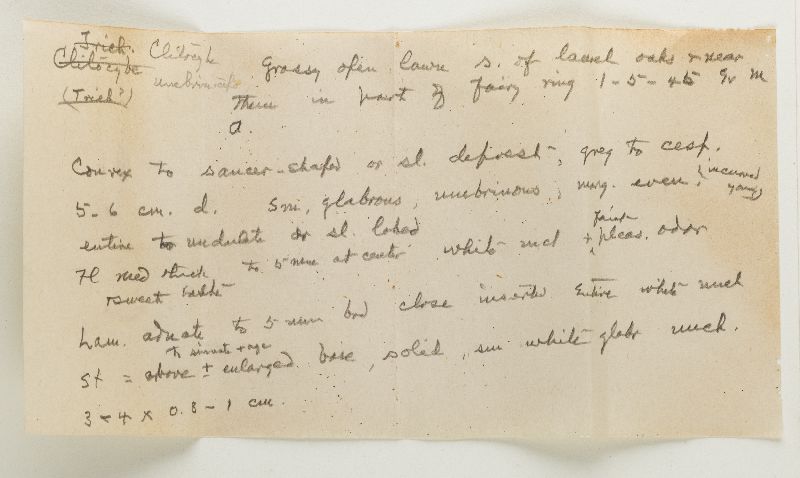 Trich. Clitocybe
Clitocybe umbrinus
(Trich?)
Grassy open lawn s. of laurel oaks & near
them in part of fairy ring 1-5-45 Gr M
a.
Convex to saucer-shaped or sl. deprest, greg to cesp.
5-6 cm. d. Sm, glabrous, umbrinous, marg. even, (incurved young)
entire to undulate or sl. lobed
Fl med thick to 5 mm at center white unch ± faint pleas. odor
& sweet taste
Lam. adnate to 5 mm brd close inserted Entire white unch
to sinuate & age
St = above ± enlarged base, solid, sm white glabr unch.
3-4 x 0.8-1 cm.